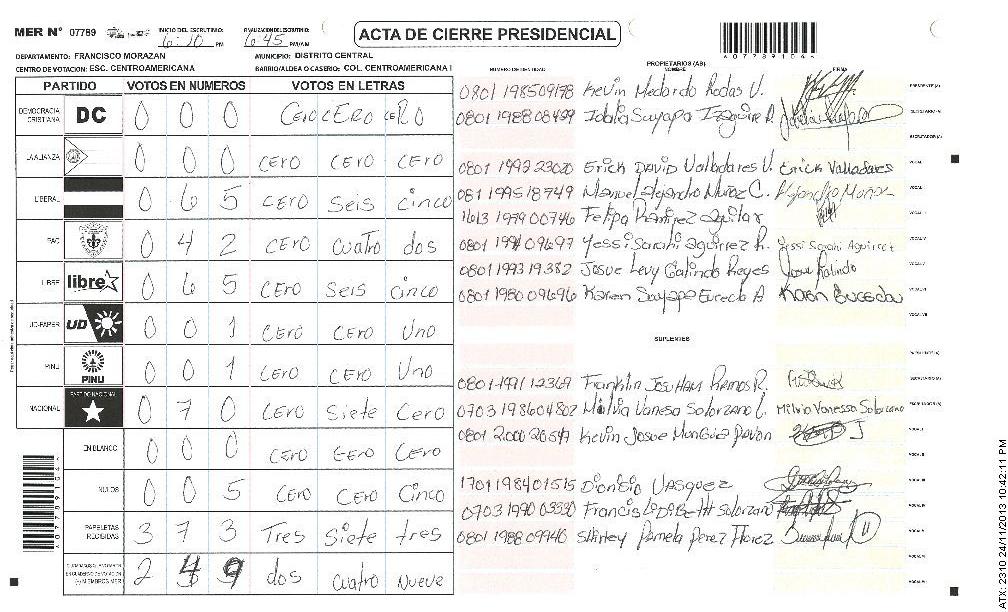 MER N° 07789 INICIO DEL ESCRUTINIO: 6:10 PM FINALIZACION DEL ESCRUTINIO: 6:45 PM/AM
ACTA DE CIERRE PRESIDENCIAL
DEPARTAMENTO: FRANCISCO MORAZAN MUNICIPIO: DISTRITO CENTRAL
CENTRO DE VOTACION: ESC. CENTROAMERICANA BARRIO/ALDEA O CASERIO: COL. CENTROAMERICANA I
PARTIDO VOTOS EN NUMEROS VOTOS EN LETRAS
DEMOCRACIA CRISTIANA DC 0 0 0 CERO CERO CERO
LA ALIANZA 0 0 0 CERO CERO CERO
LIBERAL 0 6 5 CERO Seis cinco
PAC 0 4 2 CERO cuatro dos
LIBRE libre 0 6 5 CERO Seis cinco
UD-FAPER UD 0 0 1 CERO CERO Uno
PINU PINU 0 0 1 CERO CERO Uno
NACIONAL PARTIDO NACIONAL 0 7 0 CERO Siete Cero
EN BLANCO 0 0 0 CERO CERO CERO
NULOS 0 0 5 CERO CERO Cinco
PAPELETAS RECIBIDAS 3 7 3 Tres Siete tres
2 4 9 dos cuatro Nueve
NUMERO DE IDENTIDAD PROPIETARIOS (AS) NOMBRE FIRMA
0801 198509178 Kevin Medardo Rodas V. PRESIDENTE (A)
0801 1988 08499 SECRETARIO (A)
ESCRUTADOR (A)
0801 1992 23020 Erick David Valladares V. Erick Valladares VOCAL I
081 1995 18749 Manuel Alejandro Muñoz C. VOCAL II
1613 1979 00746 Felipa Ramirez Aguilar VOCAL III
Yessi Sarahi Aguirre R. Yessi Sarahi Aguirre VOCAL IV
0801 1993 19382 Josue Levy Galindo Reyes Josue Galindo VOCAL V
0801 1980 09696 Karen VOCAL VI
VOCAL VII
SUPLENTES
PRESIDENTE (A)
0801-1991-12369 Franklin Ramos R. SECRETARIO (A)
0703 198604802 Milvia Vanesa Solorzano Milvia Vanessa Solorzano ESCRUTADOR (A)
0801 2000 20547 Kevin Josue Munguia Pavon VOCAL I
VOCAL II
1701198401515 Dionisio Vasquez VOCAL III
0703 1990 Solorzano VOCAL IV
0801 1988 09940 Shirley Pamela Perez Florez VOCAL V
VOCAL VI
VOCAL VII
ATX: 2310 24/11/2013 10:42:11 PM